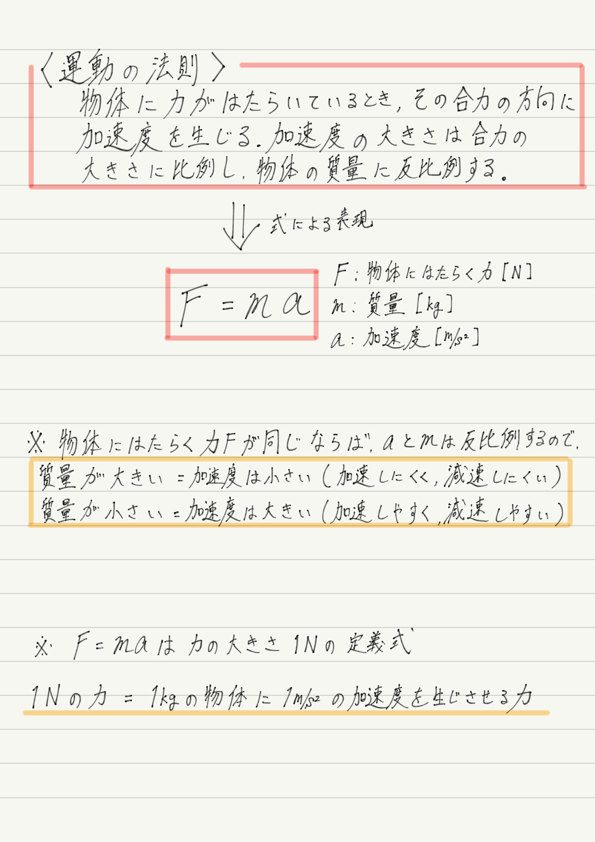 〈運動の法則〉
物体に力がはたらいているとき,その合力の方向に
加速度を生じる.加速度の大きさは合力の
大きさに比例し,物体の質量に反比例する.
式による表現
F=ma
F:物体にはたらく力[N]
m:質量[kg]
a:加速度[m/s²]
※ 物体にはたらく力Fが同じならば,aとmは反比例するので,
質量が大きい=加速度は小さい(加速しにくく,減速しにくい)
質量が小さい=加速度は大きい(加速しやすく,減速しやすい)
※ F=maは力の大きさ1Nの定義式
1Nの力 = 1kgの物体に1m/s²の加速度を生じさせる力